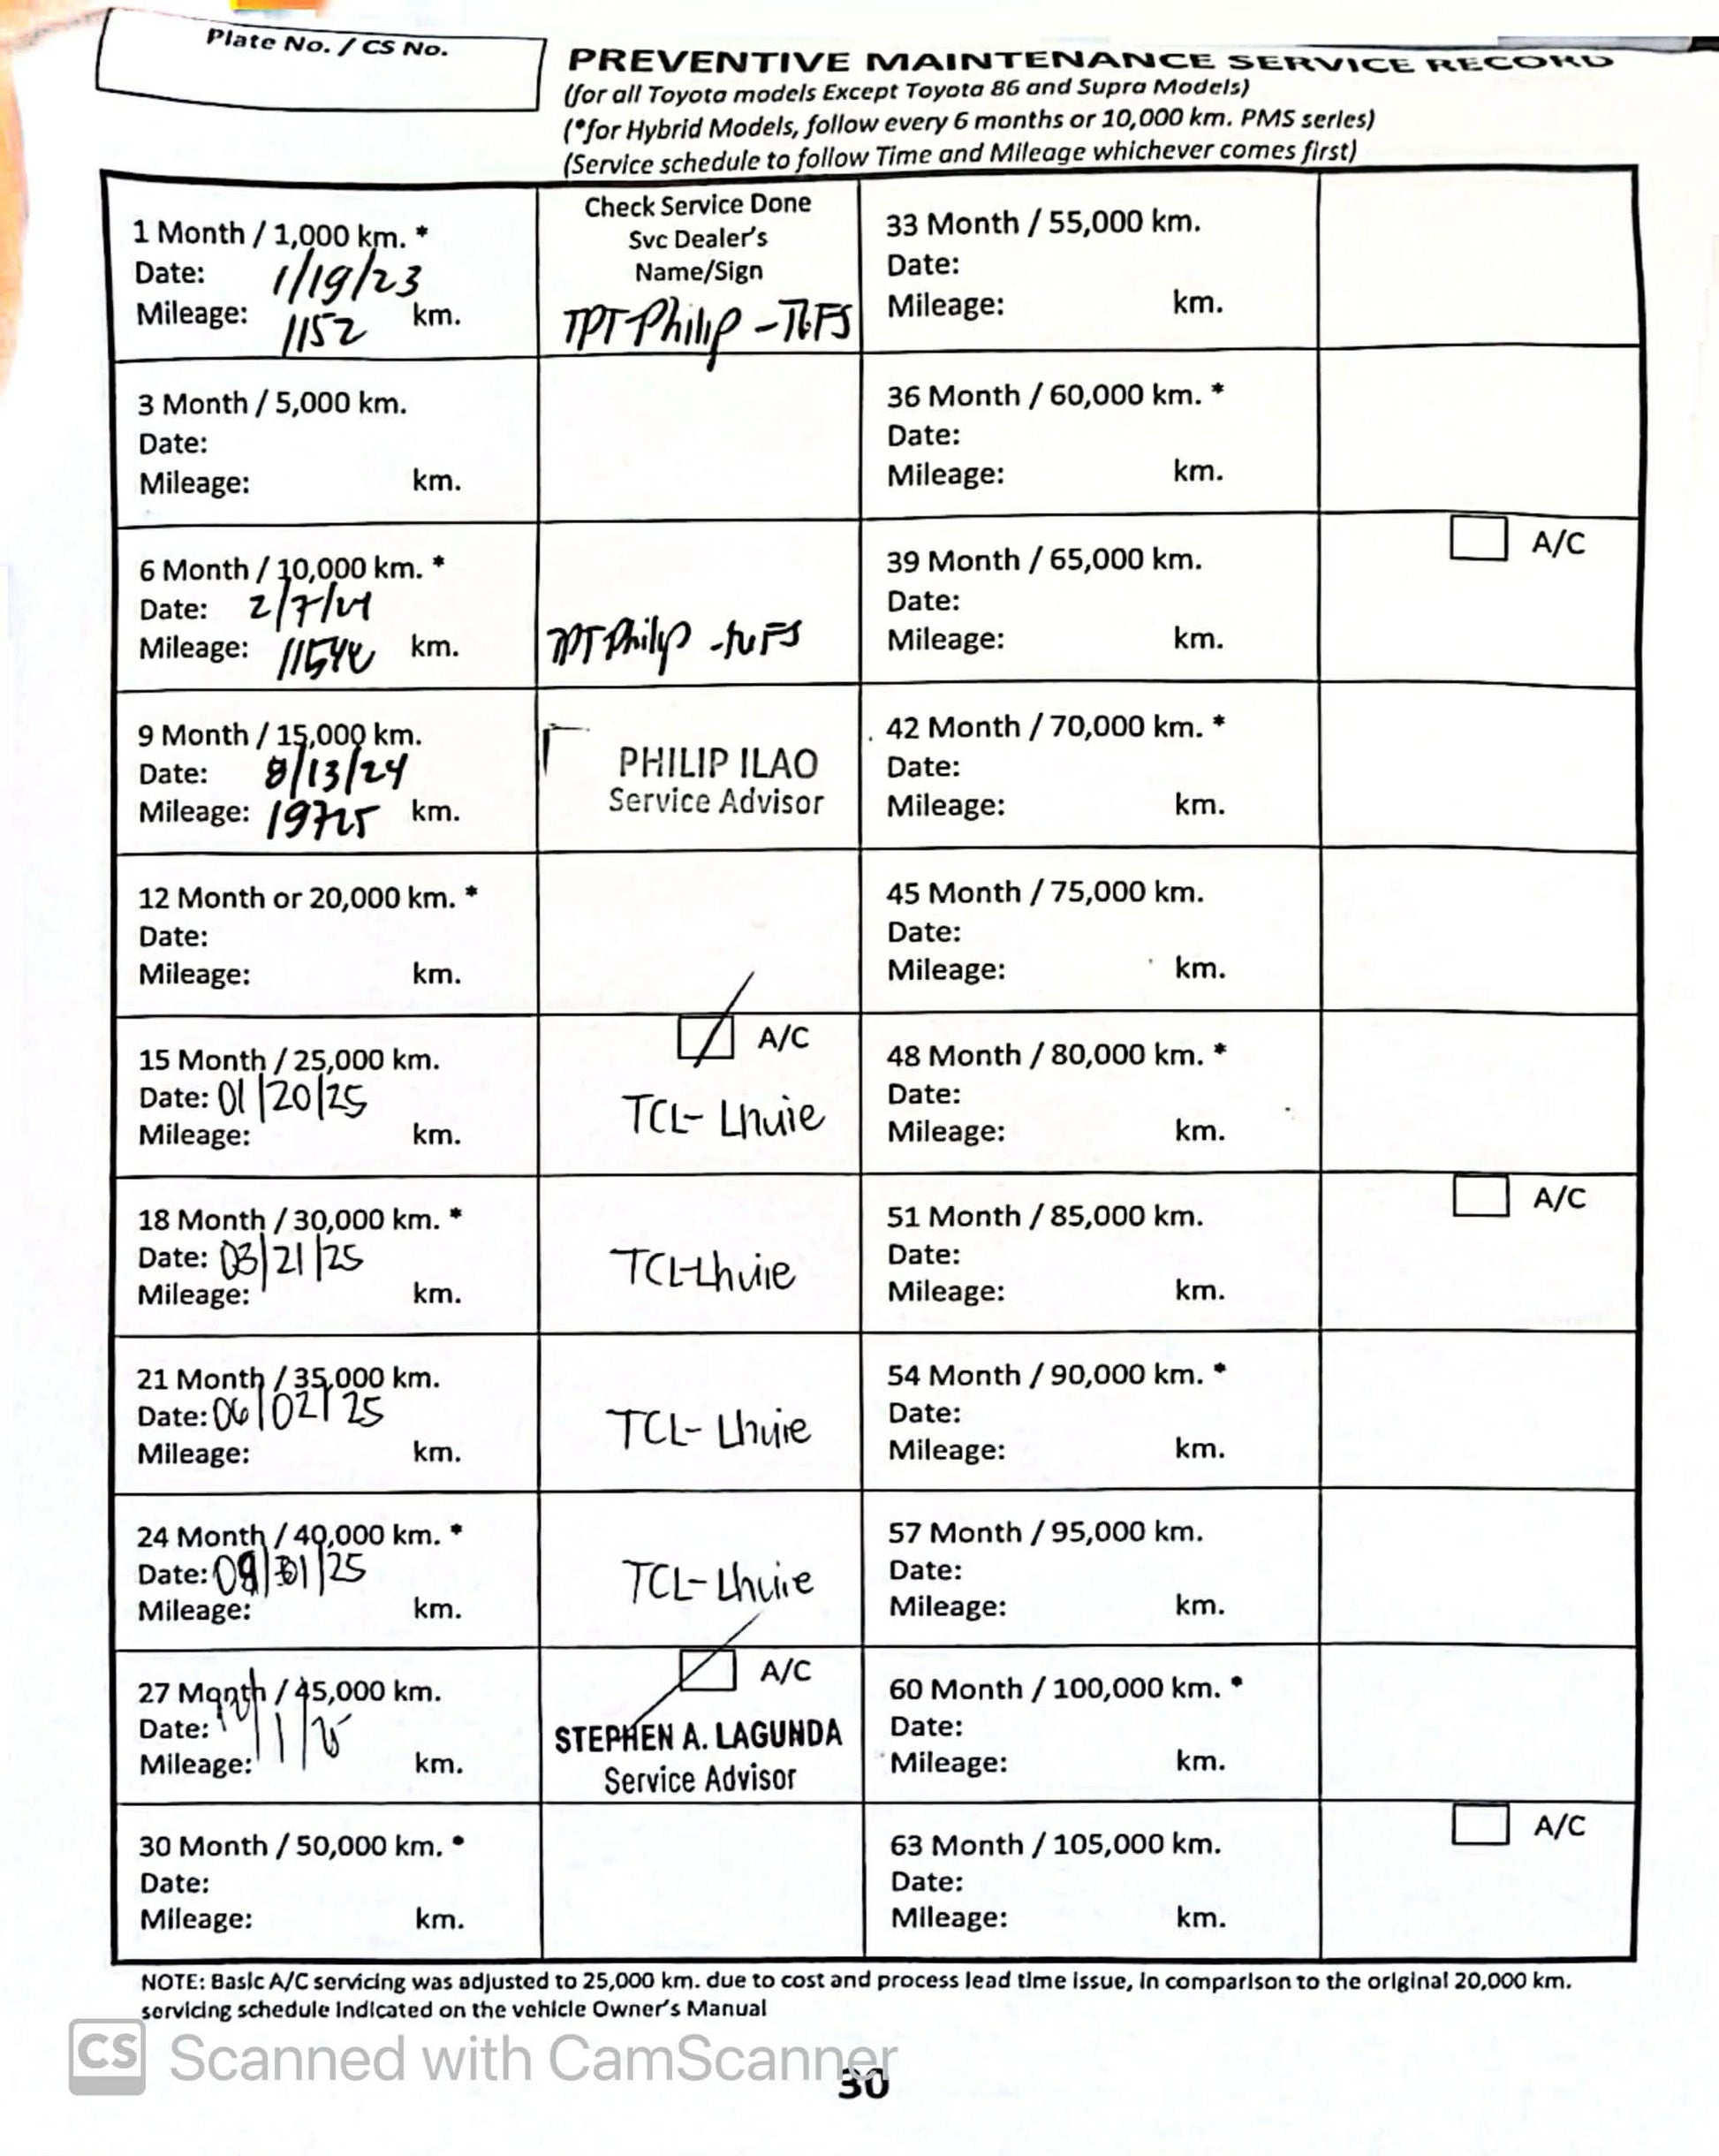 Plate No. / CS No.
PREVENTIVE MAINTENANCE SERVICE RECORD
(for all Toyota models Except Toyota 86 and Supra Models)
(*for Hybrid Models, follow every 6 months or 10,000 km. PMS series)
(Service schedule to follow Time and Mileage whichever comes first)
1 Month / 1,000 km. *
Date: 1/19/23
Mileage: 1152 km.
Check Service Done
Svc Dealer's
Name/Sign
TPT-Philip -
33 Month / 55,000 km.
Date:
Mileage: km.
3 Month / 5,000 km.
Date:
Mileage: km.
36 Month / 60,000 km. *
Date:
Mileage: km.
6 Month / 10,000 km. *
Date: 2/7/
Mileage: km.
TPT Philip -
39 Month / 65,000 km.
Date:
Mileage: km.
A/C
9 Month / 15,000 km.
Date: 8/13/24
Mileage: 19725 km.
PHILIP ILAO
Service Advisor
42 Month / 70,000 km. *
Date:
Mileage: km.
12 Month or 20,000 km. *
Date:
Mileage: km.
45 Month / 75,000 km.
Date:
Mileage: km.
15 Month / 25,000 km.
Date: 01/20/25
Mileage: km.
A/C
TCL- Lhuie
48 Month / 80,000 km. *
Date:
Mileage: km.
18 Month / 30,000 km. *
Date: 03/21/25
Mileage: km.
TCL-Lhuie
51 Month / 85,000 km.
Date:
Mileage: km.
A/C
21 Month / 35,000 km.
Date: 06/02/25
Mileage: km.
TCL- Lhuie
54 Month / 90,000 km. *
Date:
Mileage: km.
24 Month / 40,000 km. *
Date:
Mileage: km.
TCL- Lhuie
57 Month / 95,000 km.
Date:
Mileage: km.
27 Month / 45,000 km.
Date:
Mileage: km.
A/C
STEPHEN A. LAGUNDA
Service Advisor
60 Month / 100,000 km. *
Date:
Mileage: km.
30 Month / 50,000 km. *
Date:
Mileage: km.
63 Month / 105,000 km.
Date:
Mileage: km.
A/C
NOTE: Basic A/C servicing was adjusted to 25,000 km. due to cost and process lead time issue, in comparison to the original 20,000 km.
servicing schedule indicated on the vehicle Owner's Manual
CS Scanned with CamScanner
30